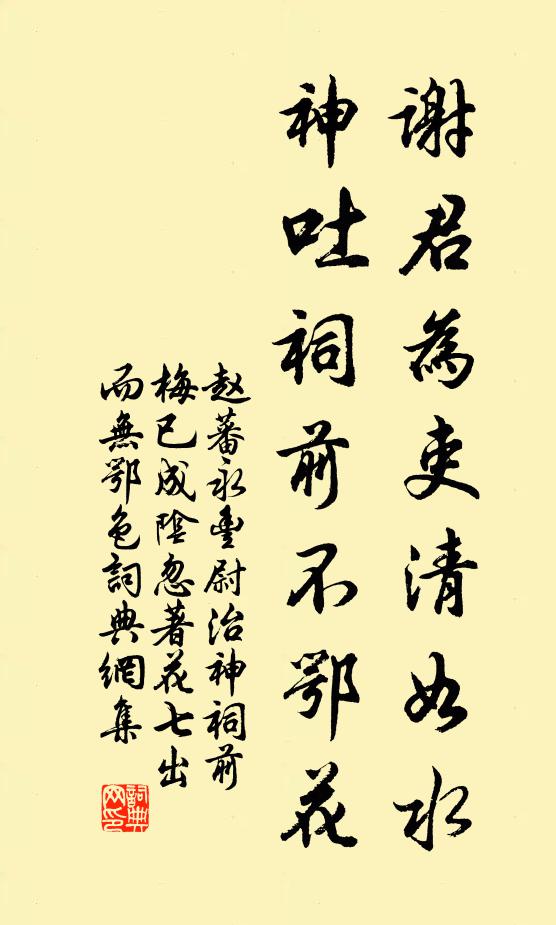 謝君為吏清如水
神吐祠前不鄂花
赵蕃永豐尉治神祠前
梅已成陰忽著花七出
而無鄂色詞典網集
詞典
网印